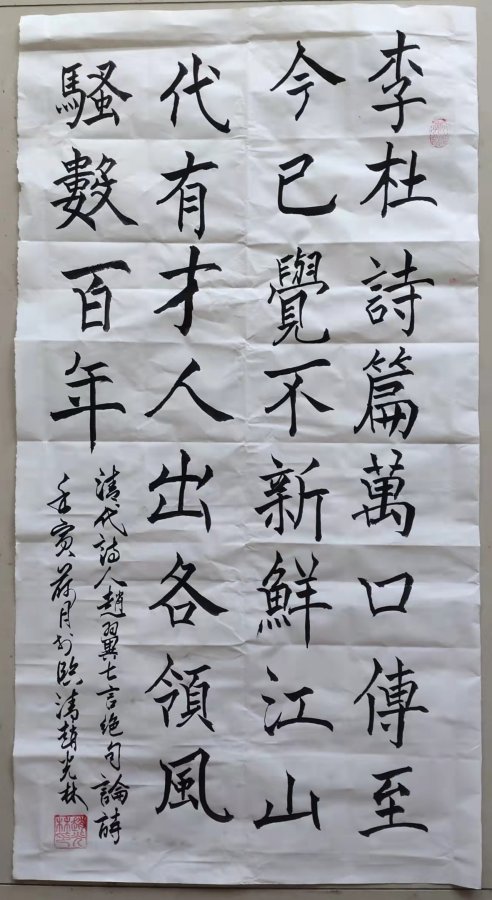 李杜詩篇萬口傳至
今已覺不新鮮江山
代有才人出各領風
騷數百年
清代詩人趙翼七言絶句論詩
壬寅荷月書臨清趙光林